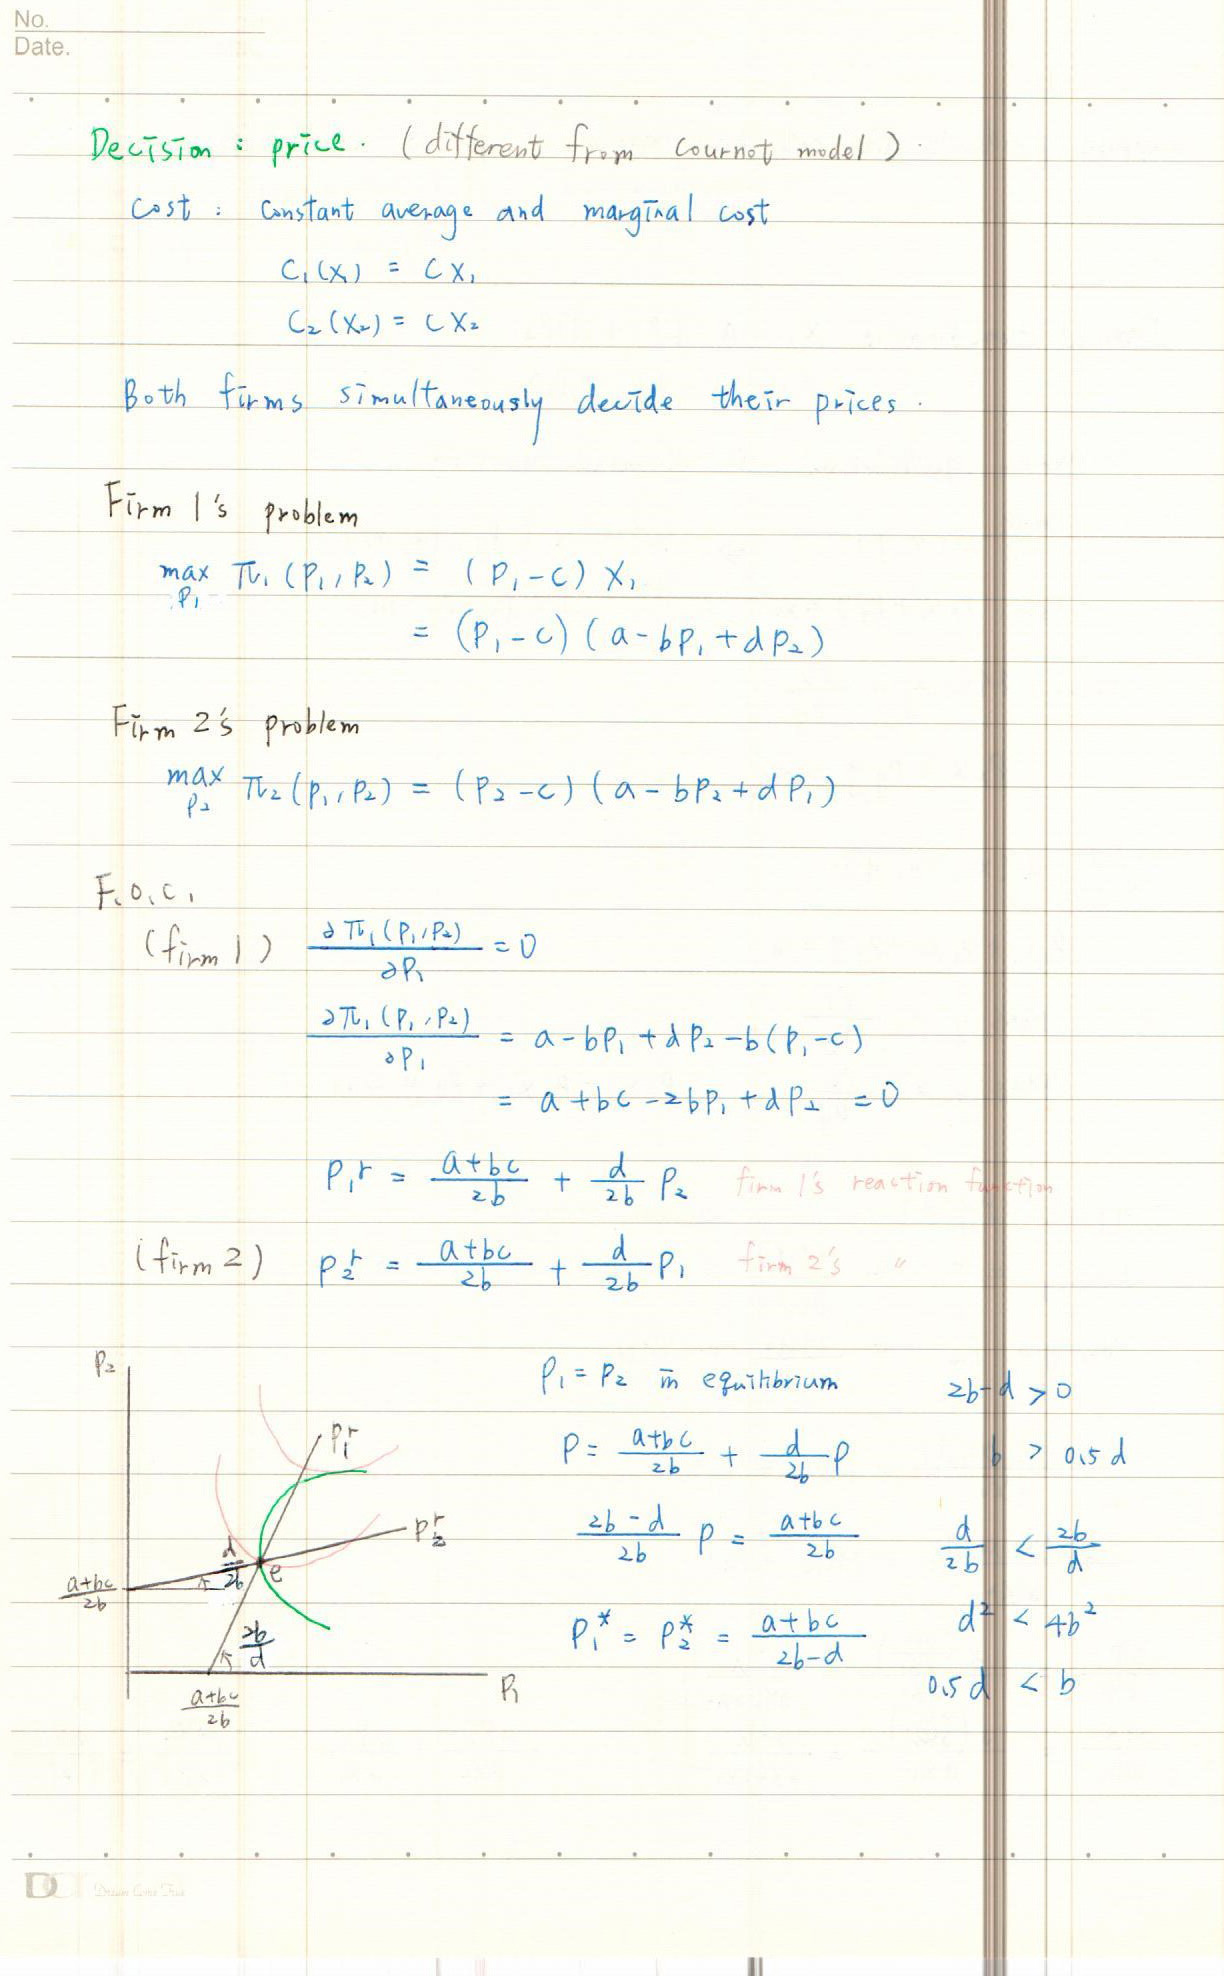 No.
Date.
Decision : price. (different from cournot model).
cost : constant average and marginal cost
C₁(X₁) = CX₁
C₂(X₂) = CX₂
Both firms simultaneously decide their prices.
Firm 1's problem
max π₁(P₁,P₂) = (P₁-c) X₁
P₁
= (P₁-c)(a-bP₁+dP₂)
Firm 2's problem
max π₂(P₁,P₂) = (P₂-c)(a-bP₂+dP₁)
P₂
F.O.C.
(firm 1) ∂π₁(P₁,P₂)/∂P₁ = 0
∂π₁(P₁,P₂)/∂P₁ = a-bP₁+dP₂-b(P₁-c)
= a+bc-2bP₁+dP₂ = 0
P₁ʳ = (a+bc)/2b + d/2b P₂ firm 1's reaction function
(firm 2) P₂ʳ = (a+bc)/2b + d/2b P₁ firm 2's 〃
P₂
P₁ʳ
P₂ʳ
d/2b
e
(a+bc)/2b
2b/d
(a+bc)/2b
P₁
P₁ = P₂ in equilibrium
P = (a+bc)/2b + d/2b P
(2b-d)/2b P = (a+bc)/2b
P₁* = P₂* = (a+bc)/(2b-d)
2b-d > 0
b > 0.5d
d/2b < 2b/d
d² < 4b²
0.5d < b
Dream Come True